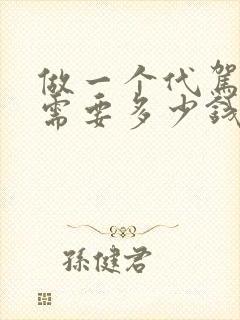 做一个代驾
需要多少钱
孫健君